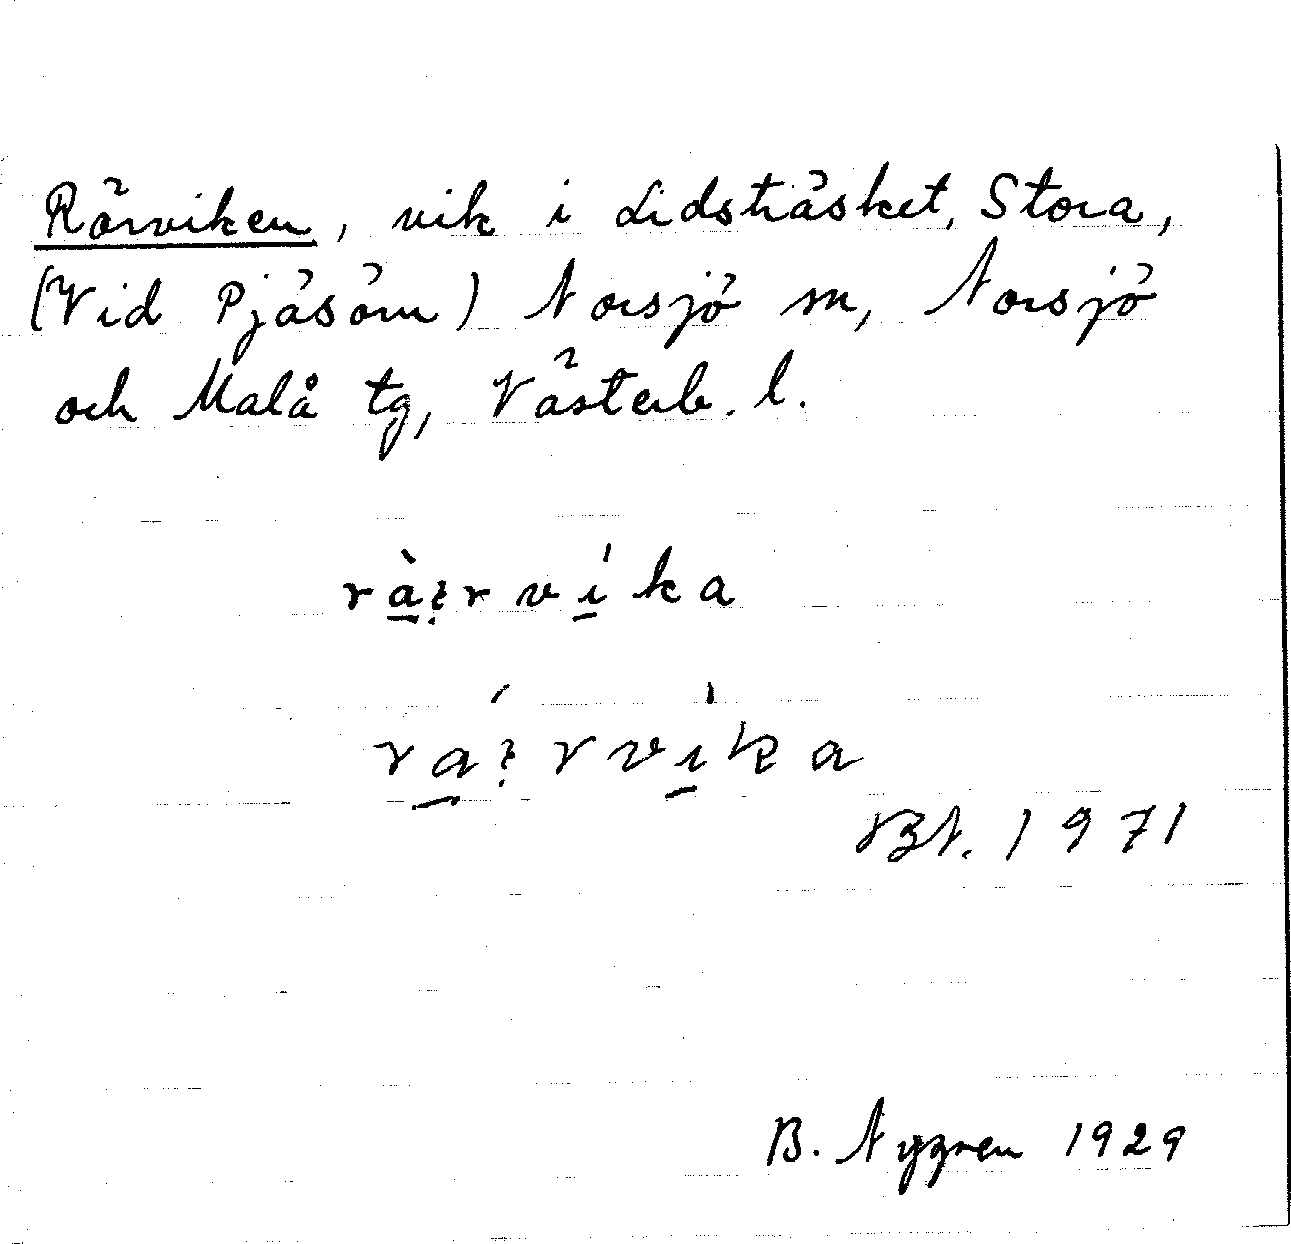 Rörviken, vik i Lidsträsket, Stora,
(Vid Pjäsörn) Norsjö sn, Norsjö
och Malå tg, Västerb. l.
rà̱ꝛr ví̱ka
rá̱ꝛrví̱ka
BN. 1971
B. Nygren 1929